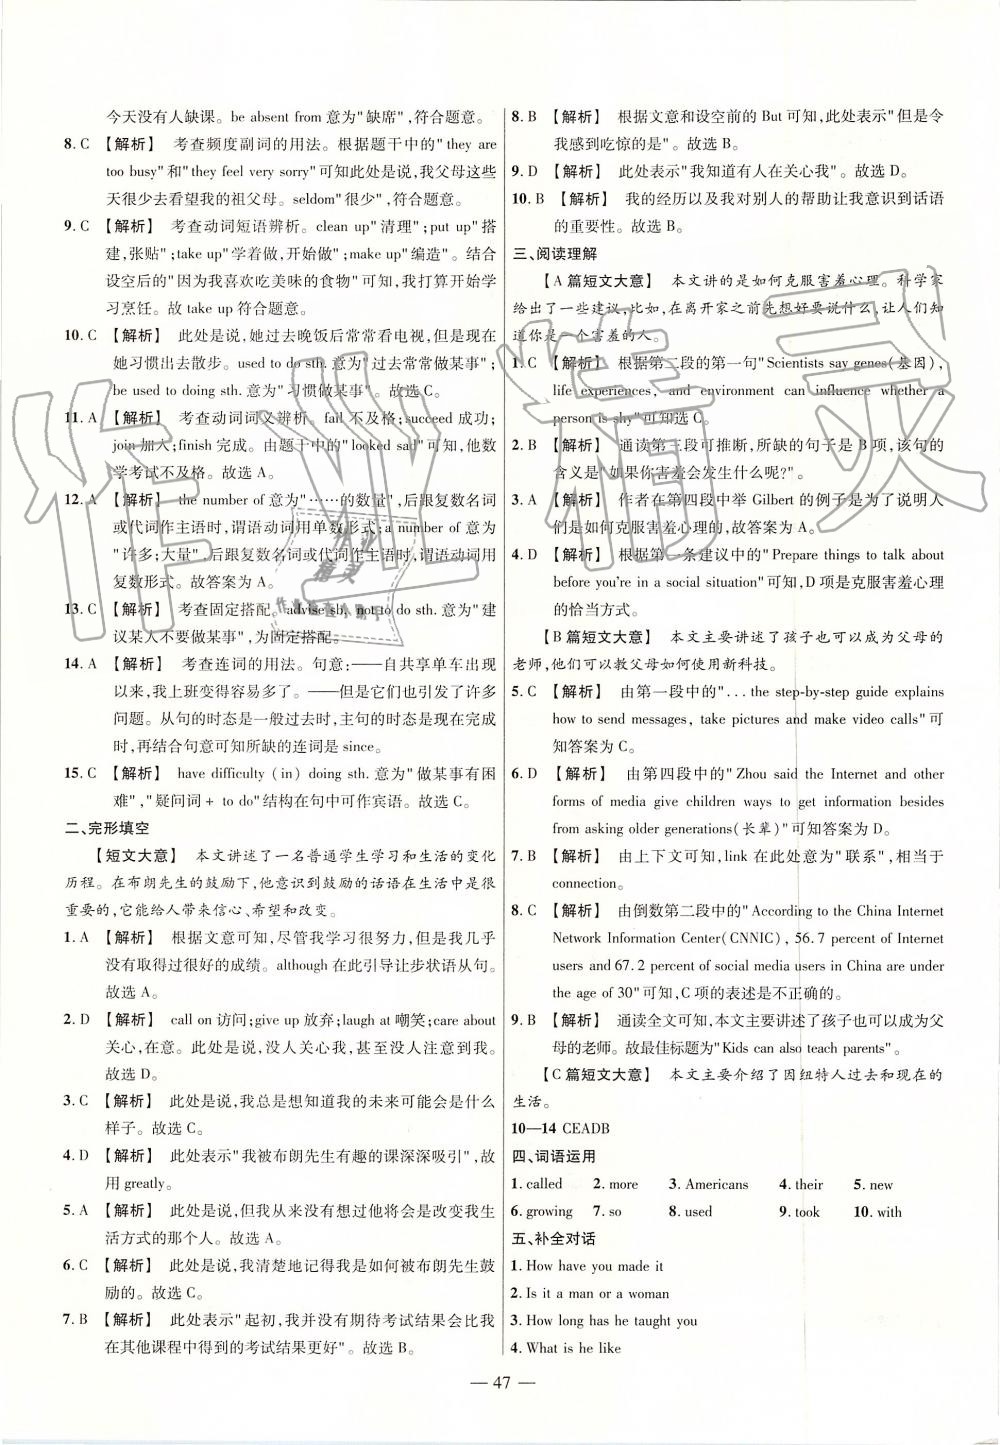 今天没有人缺课。be absent from意为"缺席",符合题意。
8. C 【解析】 考查频度副词的用法。根据题干中的"they are
too busy"和"they feel very sorry"可知此处是说,我父母这些
天很少去看望我的祖父母。seldom"很少",符合题意。
9. C 【解析】 考查动词短语辨析。clean up"清理";put up"搭
建,张贴";take up"学着做,开始做";make up"编造"。结合
设空后的"因为我喜欢吃美味的食物"可知,我打算开始学
习烹饪。故 take up 符合题意。
10. C 【解析】 此处是说,她过去晚饭后常常看电视,但是现在
她习惯出去散步。used to do sth.意为"过去常常做某事";
be used to doing sth.意为"习惯做某事"。故选 C。
11. A 【解析】 考查动词词义辨析。fail 不及格;succeed 成功;
join 加入;finish 完成。由题干中的"looked sad"可知,他数
学考试不及格。故选 A。
12. A 【解析】 the number of意为"……的数量",后跟复数名词
或代词作主语时,谓语动词用单数形式;a number of 意为
"许多;大量",后跟复数名词或代词作主语时,谓语动词用
复数形式。故答案为 A。
13. C 【解析】 考查固定搭配。advise sb. not to do sth.意为"建
议某人不要做某事",为固定搭配。
14. A 【解析】 考查连词的用法。句意:——自共享单车出现
以来,我上班变得容易多了。——但是它们也引发了许多
问题。从句的时态是一般过去时,主句的时态是现在完成
时,再结合句意可知所缺的连词是 since。
15. C 【解析】 have difficulty (in) doing sth.意为"做某事有困
难","疑问词+ to do"结构在句中可作宾语。故选 C。
二、完形填空
【短文大意】 本文讲述了一名普通学生学习和生活的变化
历程。在布朗先生的鼓励下,他意识到鼓励的话语在生活中是很
重要的,它能给人带来信心、希望和改变。
1. A 【解析】 根据文意可知,尽管我学习很努力,但是我几乎
没有取得过很好的成绩。although在此引导让步状语从句。
故选 A。
2. D 【解析】 call on 访问;give up 放弃;laugh at 嘲笑;care about
关心,在意。此处是说,没人关心我,甚至没人注意到我。
故选 D。
3. C 【解析】 此处是说,我总是想知道我的未来可能会是什么
样子。故选 C。
4. D 【解析】 此处表示"我被布朗先生有趣的课深深吸引",故
用 greatly。
5. A 【解析】 此处是说,但我从来没有想过他将会是改变我生
活方式的那个人。故选 A。
6. C 【解析】 此处是说,我清楚地记得我是如何被布朗先生鼓
励的。故选 C。
7. B 【解析】 此处表示"起初,我并没有期待考试结果会比我
在其他课程中得到的考试结果更好"。故选 B。
8. B 【解析】 根据文意和设空前的 But 可知,此处表示"后是令
我感到吃惊的是"。故选 B。
9. D 【解析】 此处表示"我知道有人在关心我"。故选 D。
10. B 【解析】 我的经历以及我对别人的帮助让我意识到话语
的重要性。故选 B。
三、阅读理解
【A 篇短文大意】 本文讲的是如何克服害羞心理。科学家
给出了一些建议,比如,在离开家之前先想好要说什么,让人们知
道你是一个害羞的人。
1. C 【解析】 根据第二段的第一句"Scientists say genes(基因),
life experiences, and environment can influence whether a
person is shy"可知选 C。
2. B 【解析】 通读第三段可推断,所缺的句子是 B 项,该句的
含义是"如果你害羞会发生什么呢?"。
3. A 【解析】 作者在第四段中举 Gilbert 的例子是为了说明人
们是如何克服害羞心理的,故答案为 A。
4. D 【解析】 根据第一条建议中的"Prepare things to talk about
before you're in a social situation"可知,D 项是克服害羞心理
的恰当方式。
【B 篇短文大意】 本文主要讲述了孩子也可以成为父母的
老师,他们可以教父母如何使用新科技。
5. C 【解析】 由第一段中的"... the step-by-step guide explains
how to send messages, take pictures and make video calls"可
知答案为 C。
6. D 【解析】 由第四段中的"Zhou said the Internet and other
forms of media give children ways to get information besides
from asking older generations(长辈)"可知答案为 D。
7. B 【解析】 由上下文可知,link 在此处意为"联系",相当于
connection。
8. C 【解析】 由倒数第二段中的"According to the China Internet
Network Information Center(CNNIC), 56.7 percent of Internet
users and 67.2 percent of social media users in China are under
the age of 30"可知,C 项的表述是不正确的。
9. B 【解析】 通读全文可知,本文主要讲述了孩子也可以成为父
母的老师。故最佳标题为"Kids can also teach parents"。
【C 篇短文大意】 本文主要介绍了因纽特人过去和现在的
生活。
10—14 CEADB
四、词语运用
1. called 2. more 3. Americans 4. their 5. new
6. growing 7. so 8. used 9. took 10. with
五、补全对话
1. How have you made it
2. Is it a man or a woman
3. How long has he taught you
4. What is he like
— 47 —
作业精灵